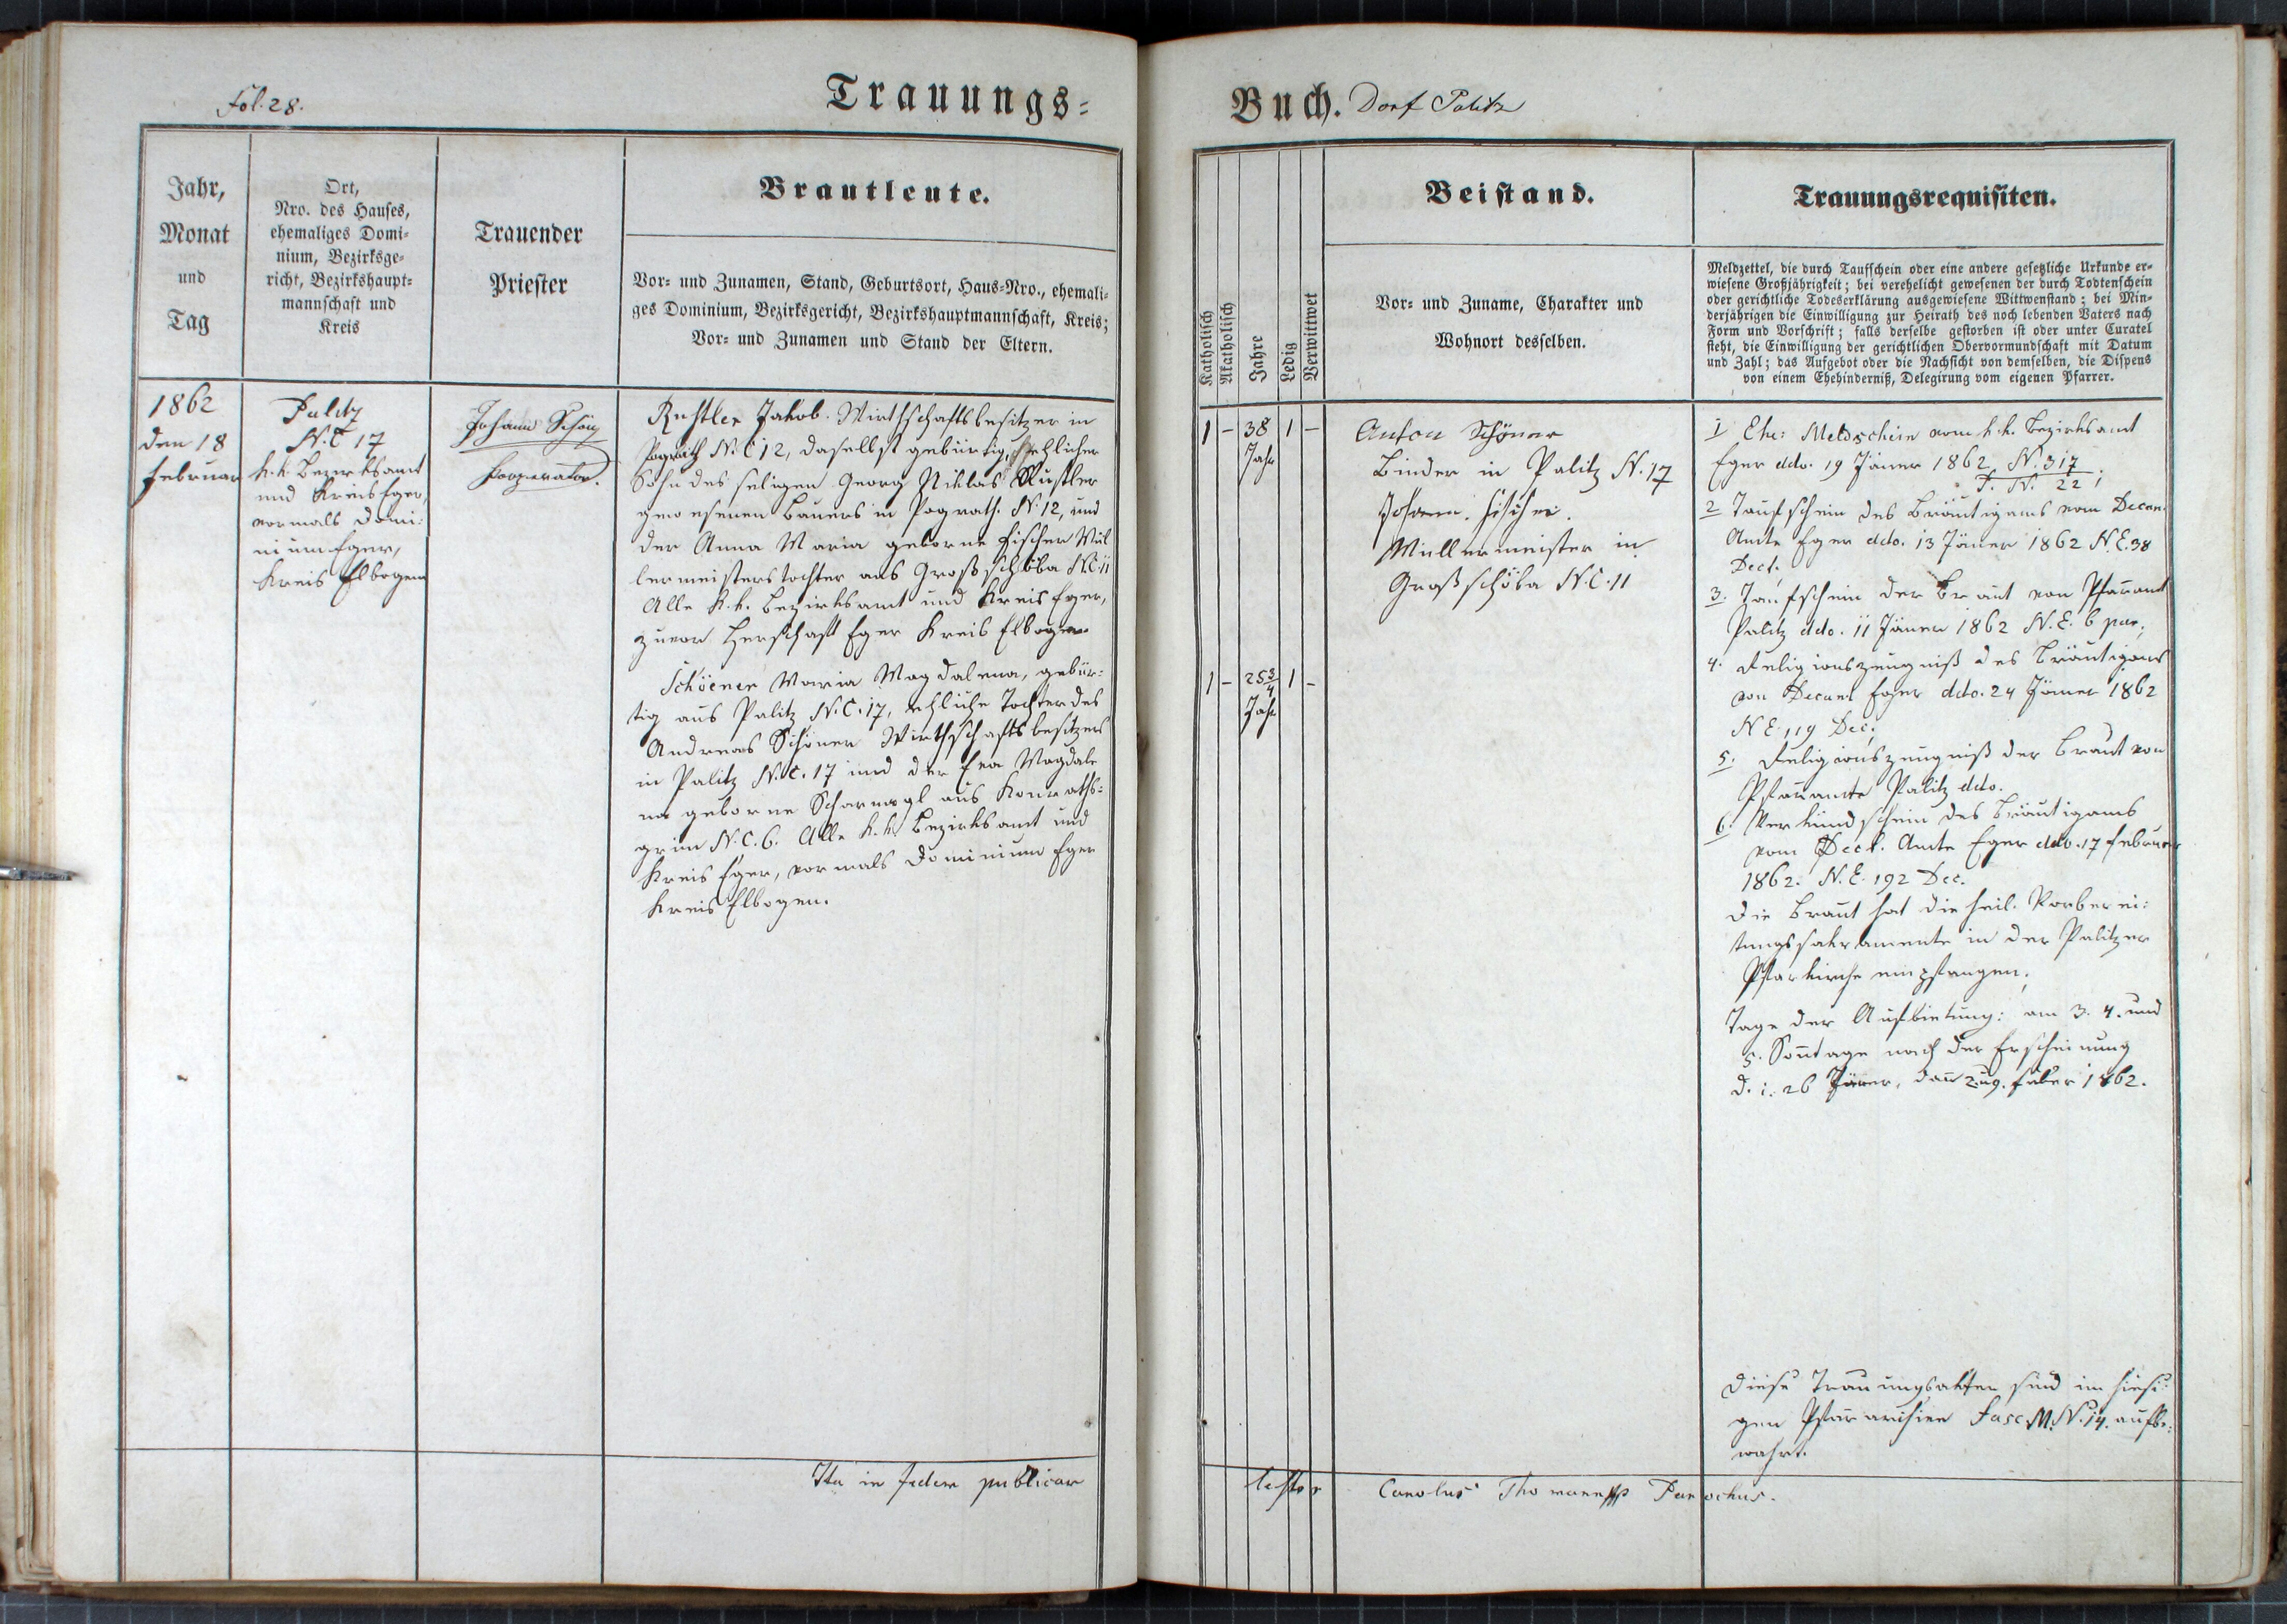 Fol. 28.
Trauungs-
Jahr,
Monat
und
Tag
Ort,
Nro. des Hauses,
ehemaliges Domi-
nium, Bezirksge-
richt, Bezirkshaupt-
mannschaft und
Kreis
Trauender
Priester
Brautleute.
Vor- und Zunamen, Stand, Geburtsort, Haus-Nro., ehemali-
ges Dominium, Bezirksgericht, Bezirkshauptmannschaft, Kreis;
Vor- und Zunamen und Stand der Eltern.
1862
den 18
Februar
Palitz
N.C 17
k.k. Bezirksamt
und Kreis Eger,
vormals Domi:
nium Eger,
Kreis Elbogen
Johann Schön
Cooperator.
Rustler Jakob. Wirthschaftsbesitzer in
Pograth N.C 12, daselbst gebürtig, ehelicher
Sohn des seligen Georg Niklas Rustler
gewesenen Bauers in Pograth. N. 12, und
der Anna Maria geborne Fischer Mül
lermeisterstochter aus Großschöba N.C 11
Alle k.k. Bezirksamt und Kreis Eger,
zuvor Herschaft Eger Kreis Elbogen
Schöener Maria Magdalena, gebür:
tig aus Palitz N.C. 17, ehliche Tochter des
Andreas Schöner Wirthschaftsbesitzers
in Palitz N.C. 17 und der Eva Magdale
na geborne Scharnagl aus Konraths:
grün N.C. 6. Alle k.k. Bezirksamt und
Kreis Eger, vormals Dominium Eger
Kreis Elbogen.
Ita in fidem publicam
Buch. Dorf Palitz
Katholisch
Akatholisch
Jahre
Ledig
Verwittwet
Beistand.
Vor- und Zuname, Charakter und
Wohnort desselben.
Trauungsrequisiten.
Meldzettel, die durch Taufschein oder eine andere gesetzliche Urkunde er-
wiesene Großjährigkeit; bei verehelicht gewesenen der durch Todtenschein
oder gerichtliche Todeserklärung ausgewiesene Wittwenstand; bei Min-
derjährigen die Einwilligung zur Heirath des noch lebenden Vaters nach
Form und Vorschrift; falls derselbe gestorben ist oder unter Curatel
steht, die Einwilligung der gerichtlichen Obervormundschaft mit Datum
und Zahl; das Aufgebot oder die Nachsicht von demselben, die Dispens
von einem Ehehinderniß, Delegirung vom eigenen Pfarrer.
1 – 38 1 –
Jahr
1 – 25 3/4 1 –
Jahr
Anton Schöner
Binder in Palitz N. 17
Johann. Fischer.
Müllermeister in
Großschöba N.C. 11
1 Ehe: Meldschein vom k.k. Bezirksamt
Eger ddo. 19 Jäner 1862 N. 317
P. N. 22;
2 Taufschein des Bräutigams vom Decan.
Amte Eger ddo. 13 Jäner 1862 N.E. 38
Dect.
3. Taufschein der Braut von Pfaramt
Palitz ddo. 11 Jäner 1862 N.E. 6 par;
4. Religionszeugniß des Bräutigams
von Decant Eger ddo. 24 Jäner 1862
N E. 119 Dec;
5. Religionszeugniß der Braut von
Pfaramte Palitz ddo.
6. Verkündschein des Bräutigams
vom Dect. Amte Eger ddo. 17 Februar
1862. N.E. 192 Dec.
Die Braut hat die heil. Vorberei:
tungssakramente in der Palitzer
Pfarkirche empfangen;
Tage der Aufbietung: am 3. 4. und
5. Sontage nach der Erscheinung
d. i. 26 Jäner, dann 2. u 9. Feber 1862.
Diese Trauungsakten sind im hiesi:
gen Pfararchive Fasc. M. N. 14. aufbe:
wahrt.
testor Carolus Thomann Parochus.